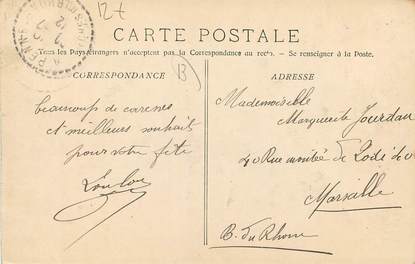 12+
CARTE POSTALE
Tous les Pays étrangers n'acceptent pas la Correspondance au recto. - Se renseigner à la Poste.
CORRESPONDANCE
B
ADRESSE
beaucoup de caresses
et meilleurs souhait
pour votre fête
Loulou
Mademoiselle
Marguerite Jourdan
40 Rue montée de Lodi 40
Marseille
B. du Rhone